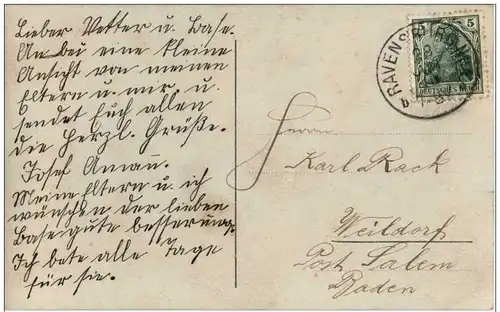 Lieber Vetter u. Base.
Anbei eine kleine
Ansicht von meinen
Eltern u. mir. u.
sendet Euch allen
die Herzl. Grüße.
Josef Amann.
Meine Eltern u. ich
wünschen der lieben
Base gute besserung.
Ich bete alle Tage
für sie.
RAVENSBURG
b
5
DEUTSCHES REICH
Herrn
Karl Rack
Weildorf
Post Salem
Baden